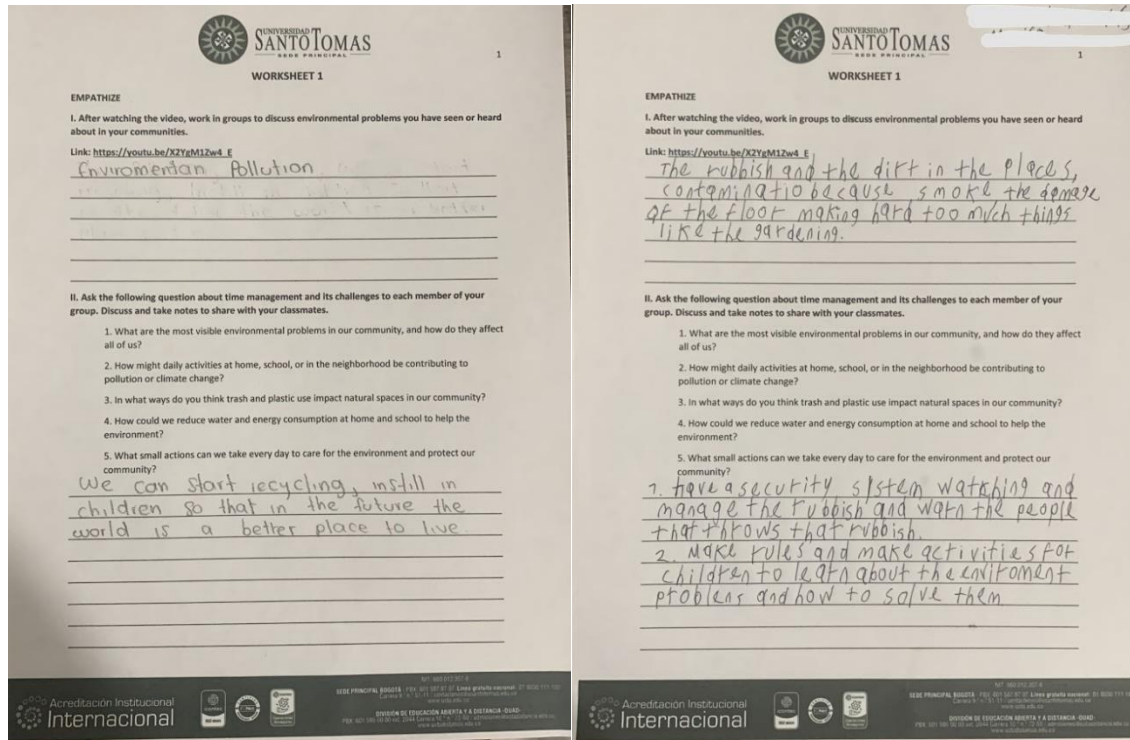 UNIVERSIDAD
SANTO TOMAS
SEDE PRINCIPAL
1
WORKSHEET 1
EMPATHIZE
I. After watching the video, work in groups to discuss environmental problems you have seen or heard
about in your communities.
Link: https://youtu.be/X2YgM1Zw4_E
Enviromentan Pollution
II. Ask the following question about time management and its challenges to each member of your
group. Discuss and take notes to share with your classmates.
1. What are the most visible environmental problems in our community, and how do they affect
all of us?
2. How might daily activities at home, school, or in the neighborhood be contributing to
pollution or climate change?
3. In what ways do you think trash and plastic use impact natural spaces in our community?
4. How could we reduce water and energy consumption at home and school to help the
environment?
5. What small actions can we take every day to care for the environment and protect our
community?
We can start recycling, instill in
children so that in the future the
world is a better place to live
Acreditación Institucional
Internacional
SEDE PRINCIPAL BOGOTÁ
DIVISIÓN DE EDUCACIÓN ABIERTA Y A DISTANCIA -DUAD-
UNIVERSIDAD
SANTO TOMAS
SEDE PRINCIPAL
1
WORKSHEET 1
EMPATHIZE
I. After watching the video, work in groups to discuss environmental problems you have seen or heard
about in your communities.
Link: https://youtu.be/X2YgM1Zw4_E
The rubbish and the dirt in the places,
contaminatio because smoke the damage
of the floor making hard too much things
like the gardening.
II. Ask the following question about time management and its challenges to each member of your
group. Discuss and take notes to share with your classmates.
1. What are the most visible environmental problems in our community, and how do they affect
all of us?
2. How might daily activities at home, school, or in the neighborhood be contributing to
pollution or climate change?
3. In what ways do you think trash and plastic use impact natural spaces in our community?
4. How could we reduce water and energy consumption at home and school to help the
environment?
5. What small actions can we take every day to care for the environment and protect our
community?
1. have a security system watching and
manage the rubbish and warn the people
that throws that rubbish.
2. Make rules and make activities for
children to learn about the enviroment
problems and how to solve them
Acreditación Institucional
Internacional
SEDE PRINCIPAL BOGOTÁ
DIVISIÓN DE EDUCACIÓN ABIERTA Y A DISTANCIA -DUAD-